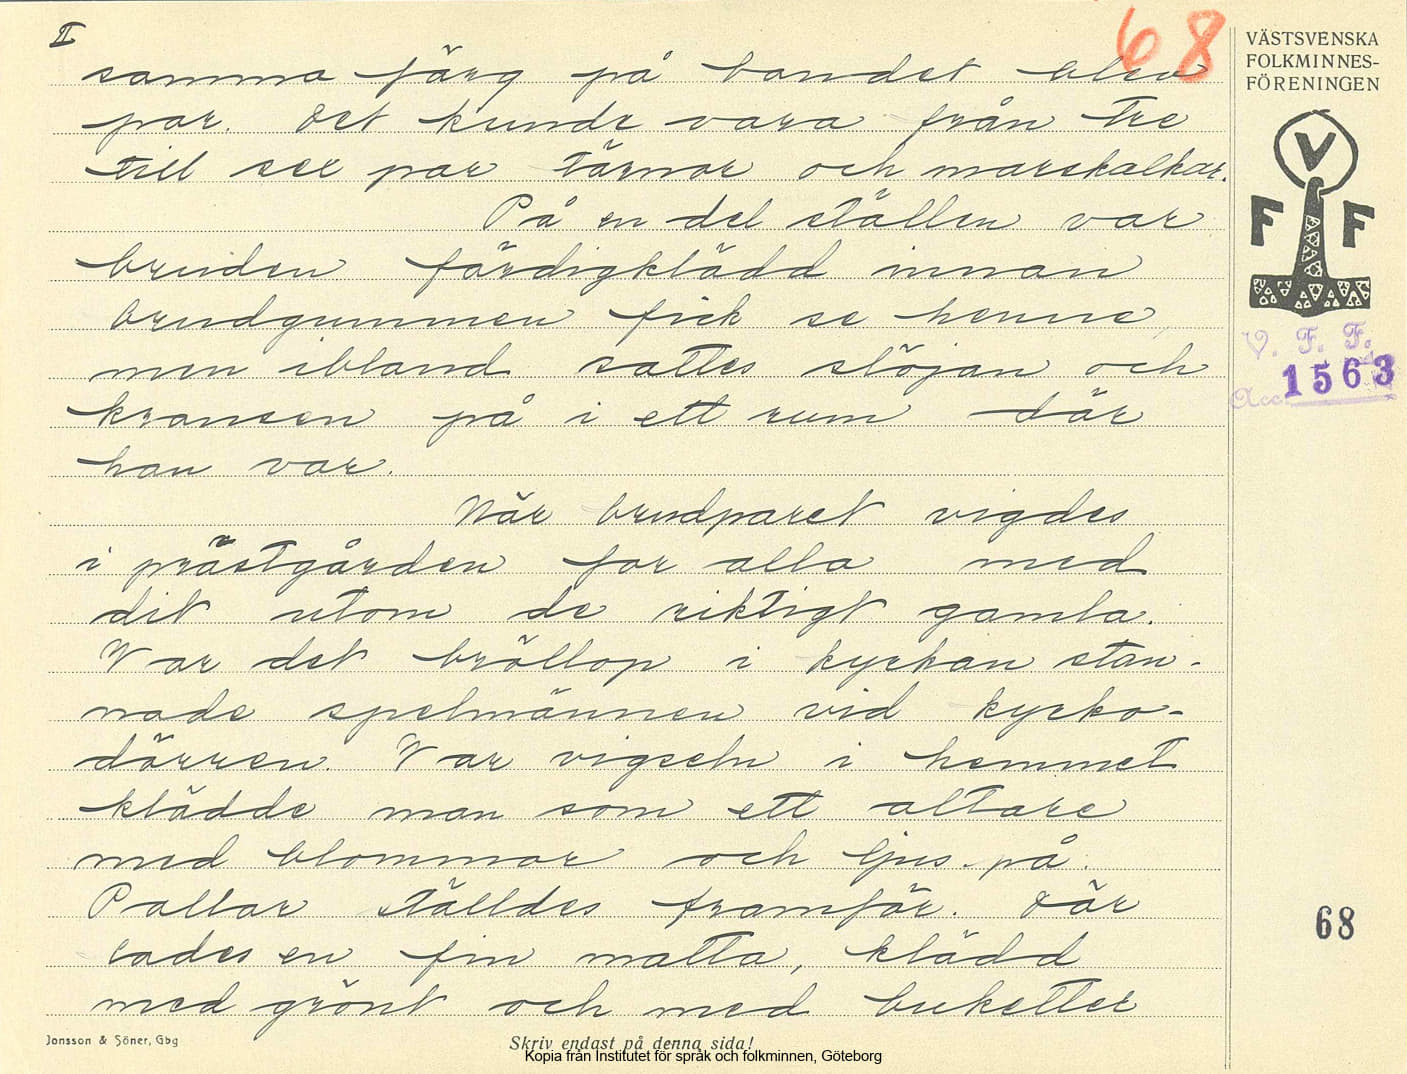 II
68
samma färg på bandet blev
par. Det kunde vara från tre
till sex par tärnor och marskalkar.
På en del ställen var
bruden färdigklädd innan
brudgummen fick se henne,
men ibland sattes slöjan och
kransen på i ett rum där
han var.
När brudparet vigdes
i prästgården for alla med
dit utom de riktigt gamla.
Var det bröllop i kyrkan stan-
nade spelmännen vid kyrko-
dörren. Var vigseln i hemmet
klädde man som ett altare
med blommor och ljus på.
Pallar ställdes framför. Där
lades en fin matta, klädd
med grönt och med buketter
VÄSTSVENSKA
FOLKMINNES-
FÖRENINGEN
V
F F
V. F. F.
Acc. 1563
68
Jonsson & Söner, Gbg
Skriv endast på denna sida!
Kopia från Institutet för språk och folkminnen, Göteborg